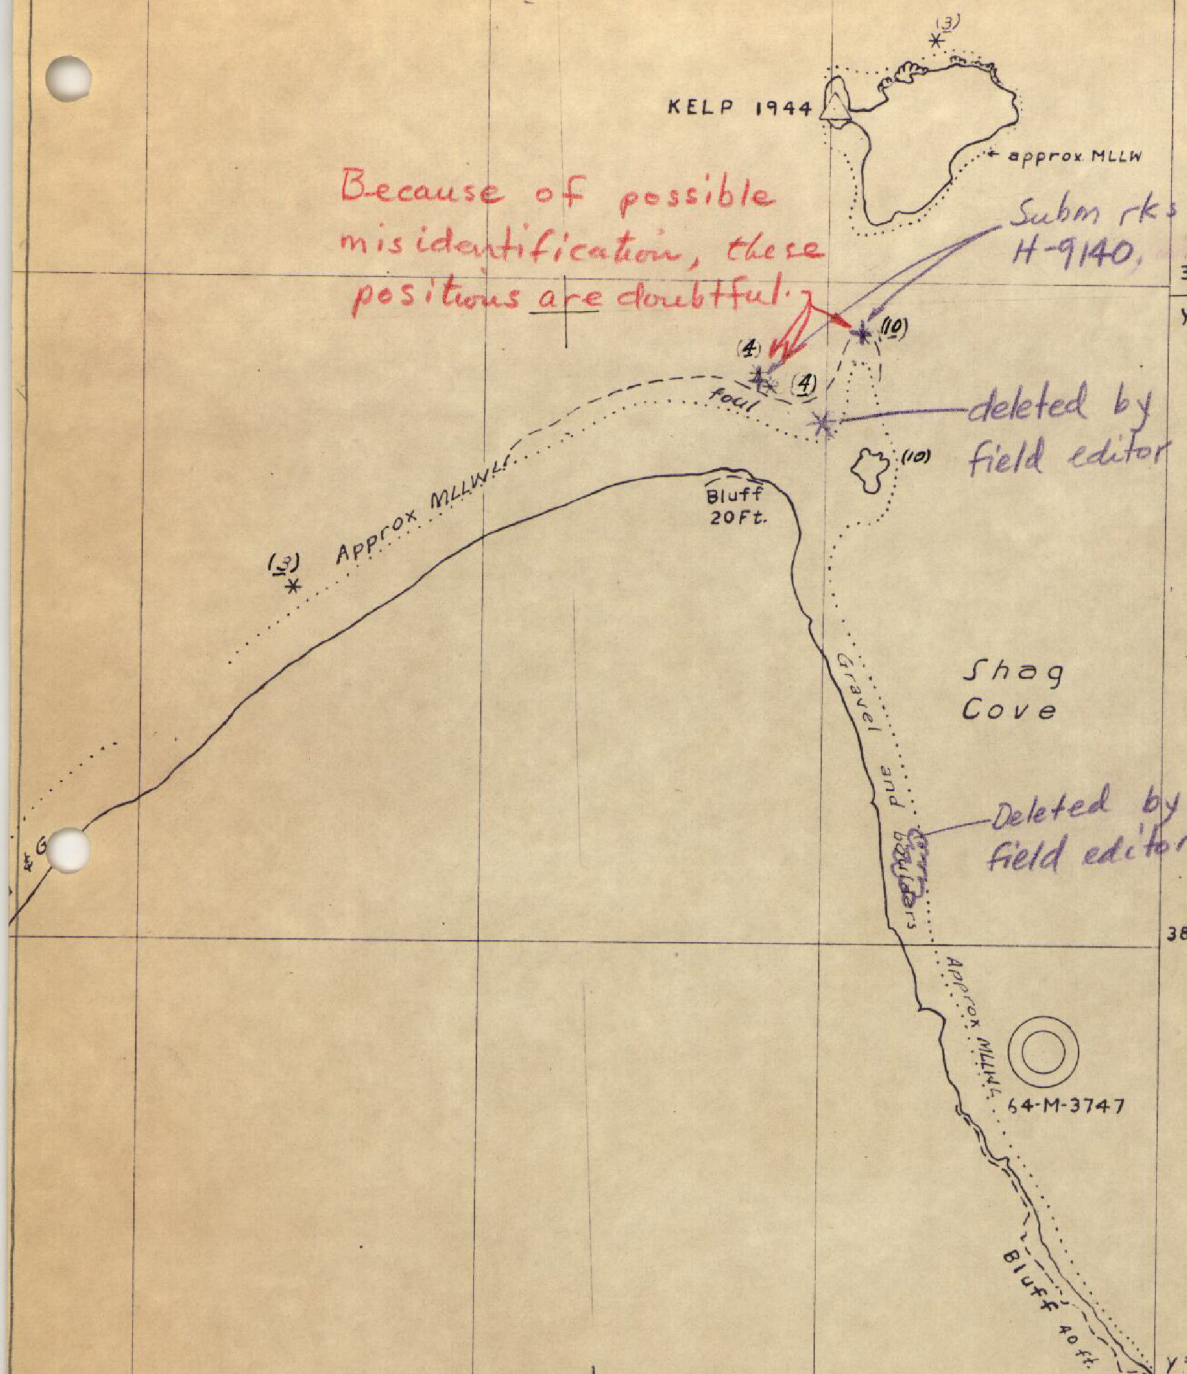 (3)
KELP 1944
approx MLLW
Because of possible
misidentification, these
positions are doubtful.
Subm rks
H-9140,
3
Y
(10)
(4)
(4)
foul
deleted by
field editor
(10)
Approx MLLWL
Bluff
20Ft.
(3)
Gravel and boulders
Shag
Cove
Deleted by
field editor
* G
38
Approx MLLWL
64-M-3747
Bluff 40 ft.
Y=